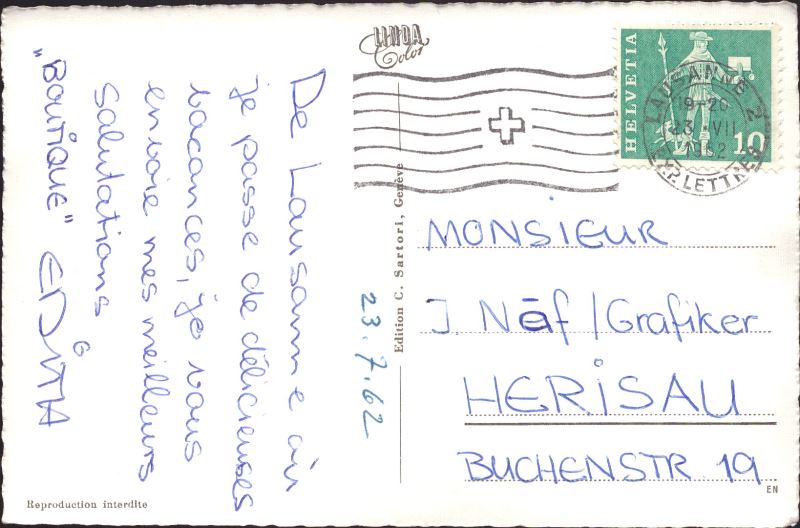 De Lausanne où
je passe de délicieuses
vacances, je vous
envoie mes meilleurs
salutations
"BOUTIQUE" EDITTA
23.7.62
Edition C. Sartori, Genève
LINDA
Color
HELVETIA
10
LAUSANNE 2
19-20
23. VII
1962
EXP. LETTRES
MONSIEUR
J. Näf / Grafiker
HERISAU
BUCHENSTR 19
EN
Reproduction interdite